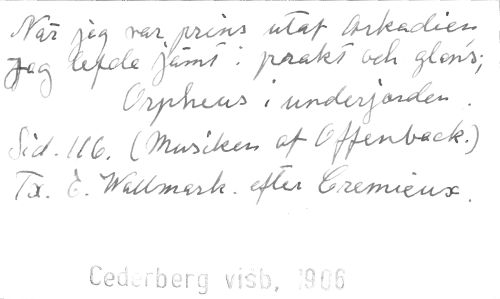 När jag var prins utaf Arkadien
Jag lefde jämt i prakt och glans;
Orpheus i underjorden.
Sid. 116. (Musiken af Offenback.)
Tx. E. Wallmark. efter Cremieux.
Cederberg visb, 1906